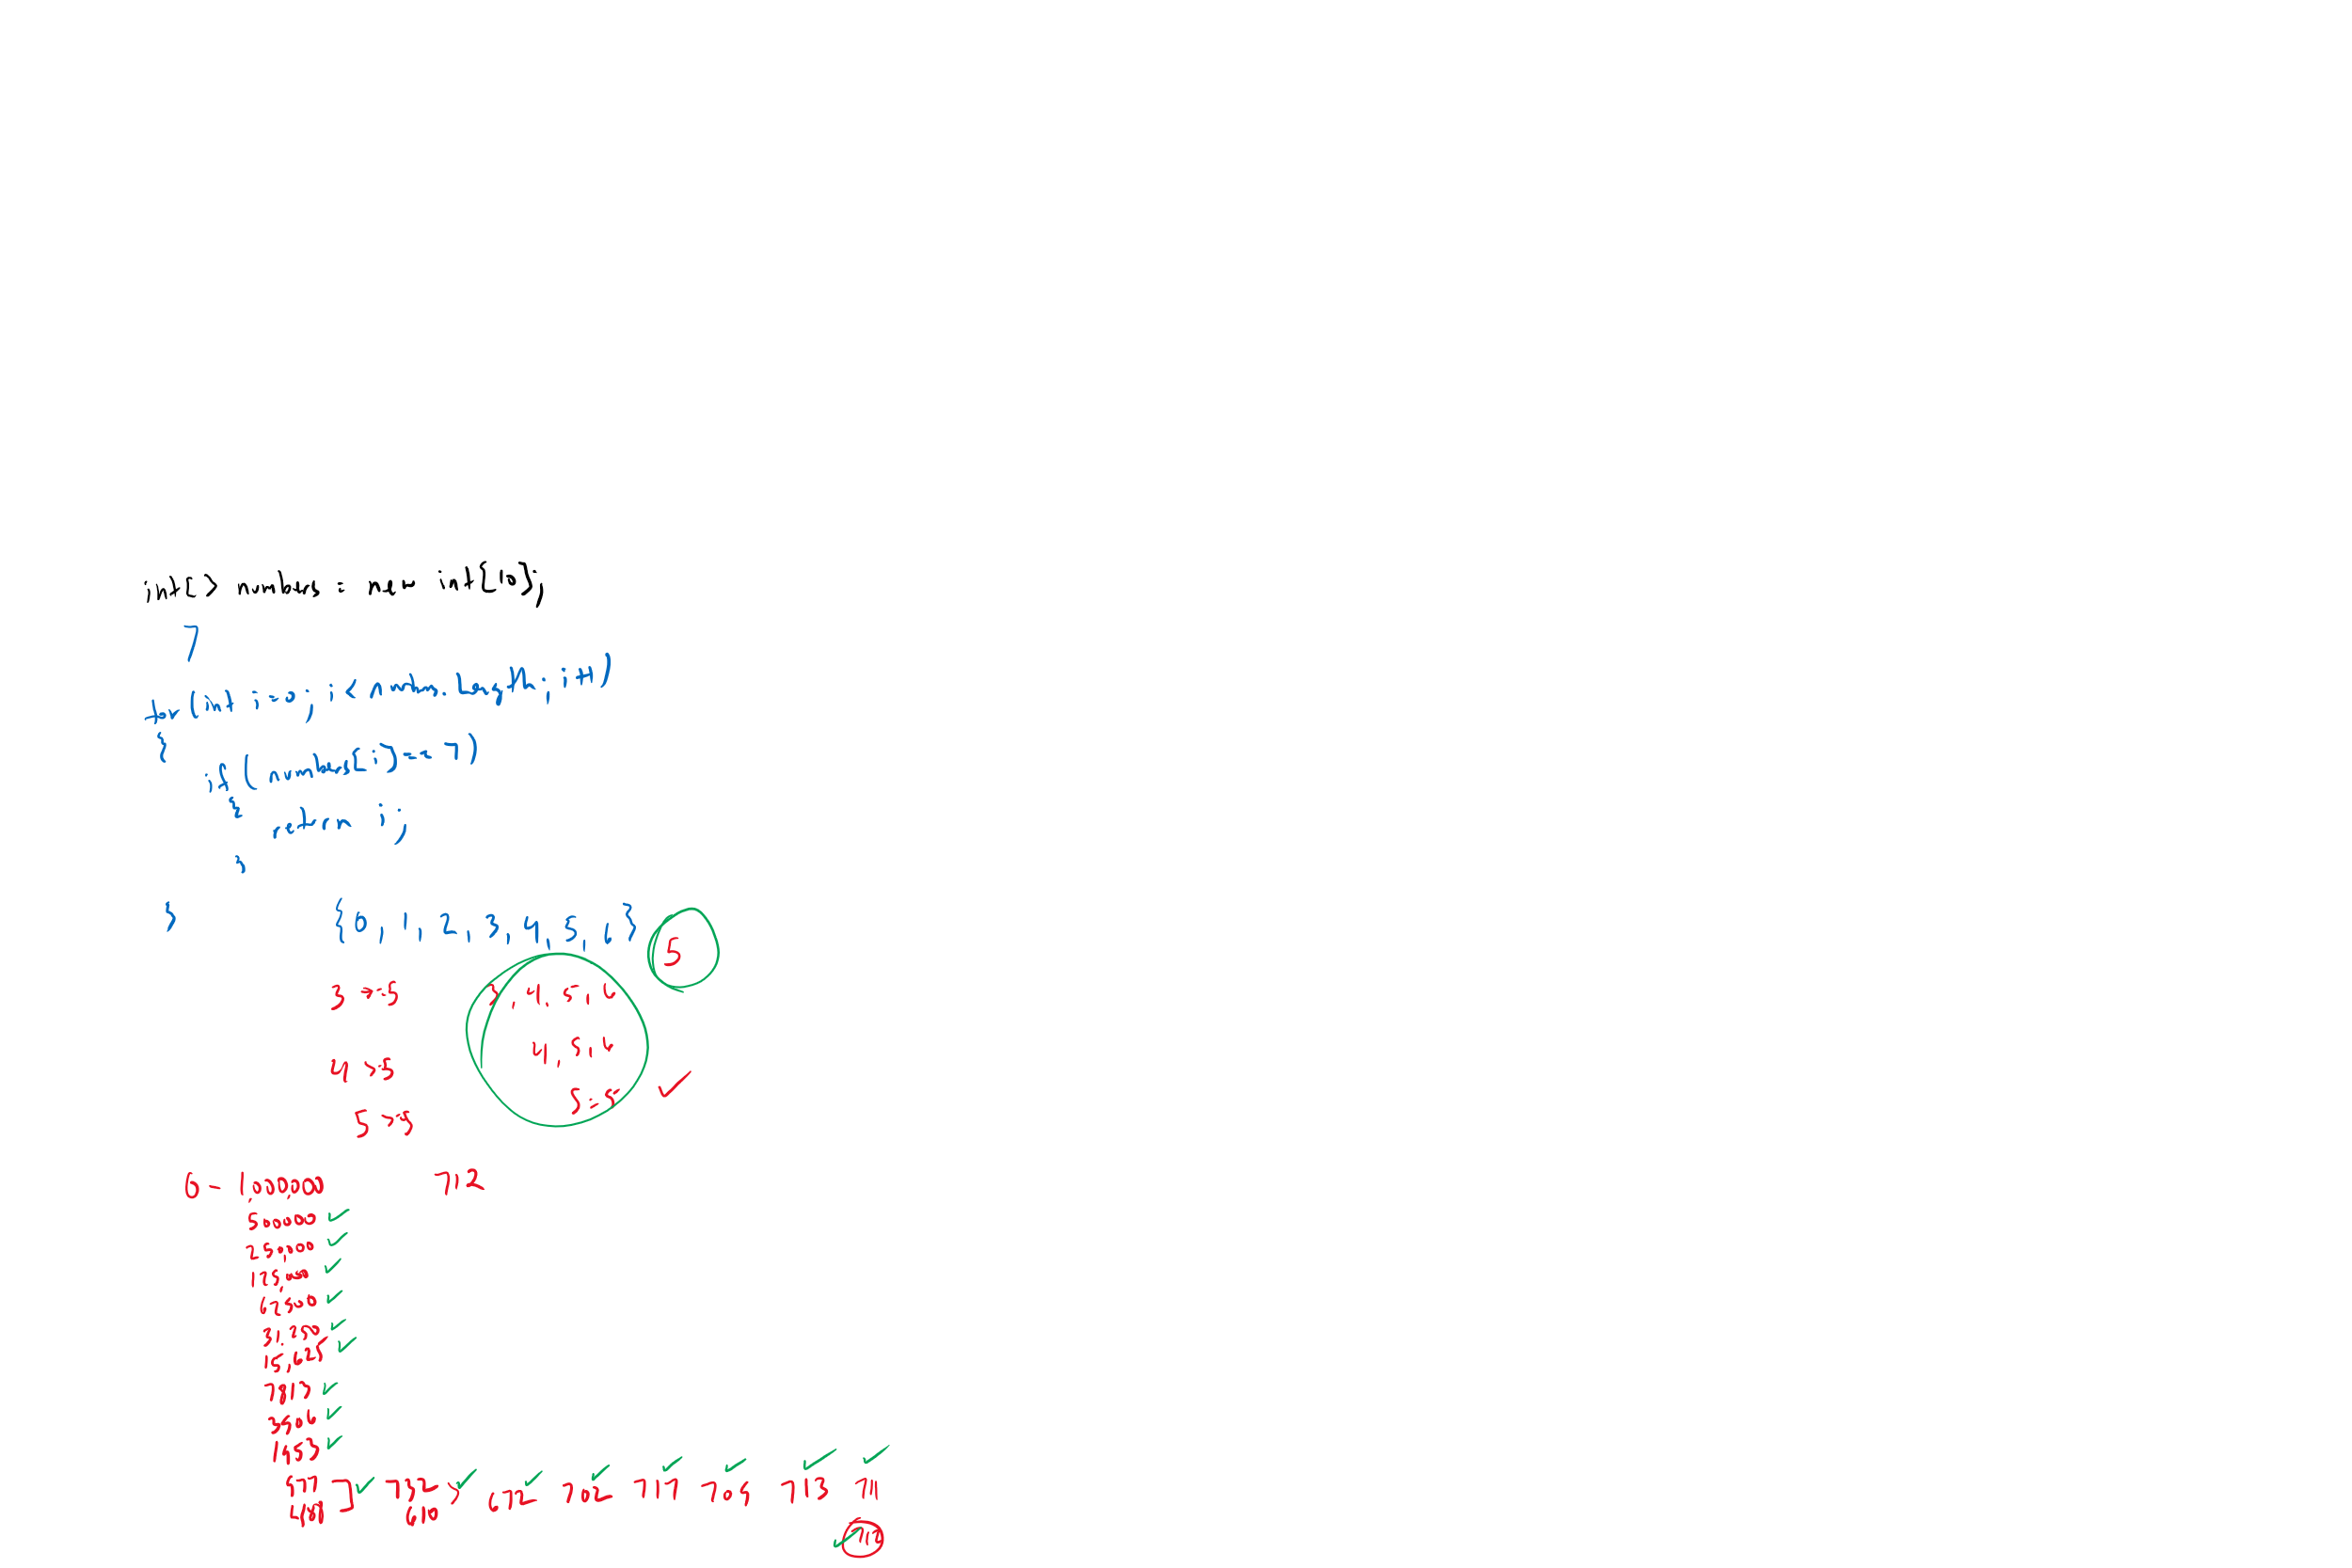 int[] numbers = new int[10];
7
for(int i=0; i < numbers.Length; i++)
{
if(numbers[i]==7)
{
return i;
}
}
{0, 1, 2, 3, 4, 5, 6}
5
3 >= 5 3, 4, 5, 6
4, 5, 6
4 >= 5
5 = 5 ✓
5 >= 5
0 - 1,000,000 712
500000 ✓
250,000 ✓
125,000 ✓
62500 ✓
31,250 ✓
15,625 ✓
7813 ✓
3906 ✓
1953 ✓
977 ] ✓ 732 ✓ 672 ✓ 702 ✓ 717 ✓ 709 ✓ 713 ✓ 711 ✓
488 610
✓ 712